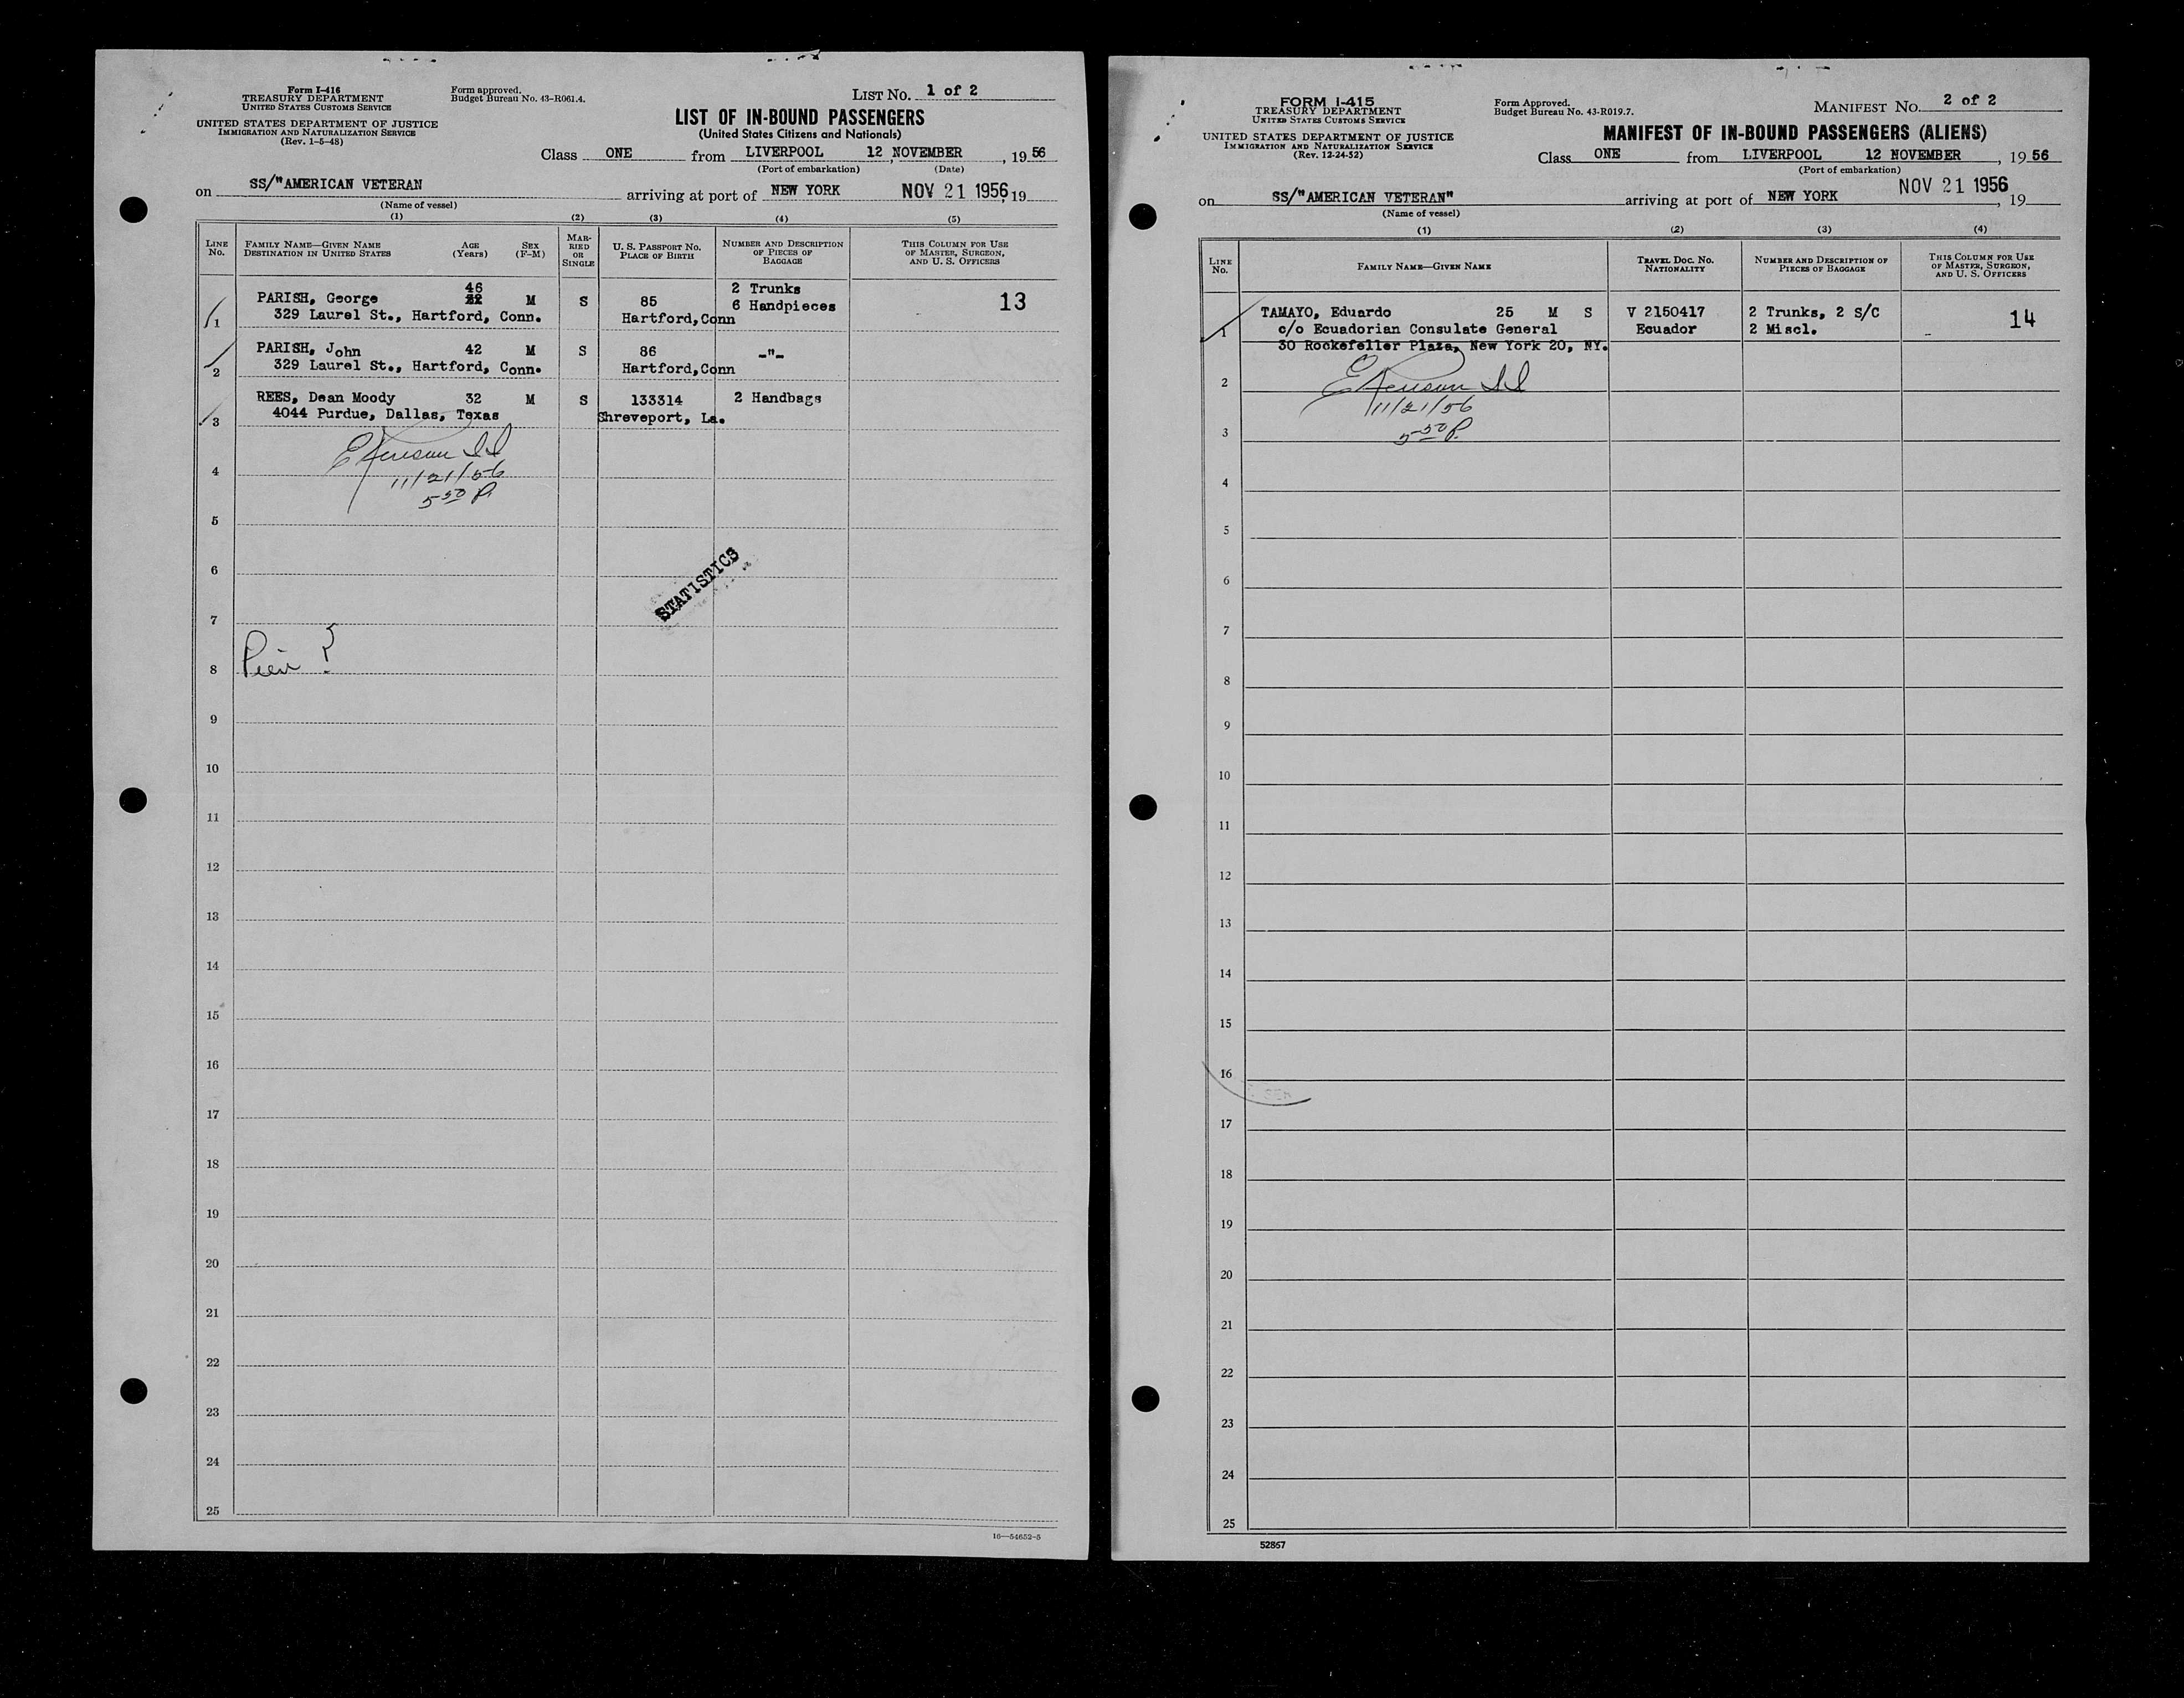 Form I-416
TREASURY DEPARTMENT
UNITED STATES CUSTOMS SERVICE
UNITED STATES DEPARTMENT OF JUSTICE
IMMIGRATION AND NATURALIZATION SERVICE
(Rev. 1-5-48)
Form approved.
Budget Bureau No. 43-R061.4.
LIST NO. 1 of 2
LIST OF IN-BOUND PASSENGERS
(United States Citizens and Nationals)
Class ONE from LIVERPOOL 12 NOVEMBER, 19 56
(Port of embarkation) (Date)
on SS/"AMERICAN VETERAN arriving at port of NEW YORK NOV 21 1956, 19
(Name of vessel)
(1) (2) (3) (4) (5)
LINE No. FAMILY NAME—GIVEN NAME DESTINATION IN UNITED STATES AGE (Years) SEX (F-M) MARRIED OR SINGLE U. S. PASSPORT NO. PLACE OF BIRTH NUMBER AND DESCRIPTION OF PIECES OF BAGGAGE THIS COLUMN FOR USE OF MASTER, SURGEON, AND U. S. OFFICERS
46 2 Trunks
PARISH, George M S 85 6 Handpieces 13
1 329 Laurel St., Hartford, Conn. Hartford, Conn
PARISH, John 42 M S 86 -"-
2 329 Laurel St., Hartford, Conn. Hartford, Conn
REES, Dean Moody 32 M S 133314 2 Handbags
3 4044 Purdue, Dallas, Texas Shreveport, La.
4 11/21/56
5 50 P.
5
6
STATISTICS
7
8
?
9
10
11
12
13
14
15
16
17
18
19
20
21
22
23
24
25
16—54652-5
FORM I-415
TREASURY DEPARTMENT
UNITED STATES CUSTOMS SERVICE
UNITED STATES DEPARTMENT OF JUSTICE
IMMIGRATION AND NATURALIZATION SERVICE
(Rev. 12-24-52)
Form Approved.
Budget Bureau No. 43-R019.7.
MANIFEST NO. 2 of 2
MANIFEST OF IN-BOUND PASSENGERS (ALIENS)
Class ONE from LIVERPOOL 12 NOVEMBER, 19 56
(Port of embarkation)
on SS/"AMERICAN VETERAN" arriving at port of NEW YORK NOV 21 1956, 19
(Name of vessel)
(1) (2) (3) (4)
LINE No. FAMILY NAME—GIVEN NAME TRAVEL DOC. NO. NATIONALITY NUMBER AND DESCRIPTION OF PIECES OF BAGGAGE THIS COLUMN FOR USE OF MASTER, SURGEON, AND U. S. OFFICERS
TAMAYO, Eduardo 25 M S V 2150417 2 Trunks, 2 S/C 14
1 c/o Ecuadorian Consulate General Ecuador 2 Miscl.
30 Rockefeller Plaza, New York 20, NY.
2
11/21/56
3 5 50 P.
4
5
6
7
8
9
10
11
12
13
14
15
16
17
18
19
20
21
22
23
24
25
52867